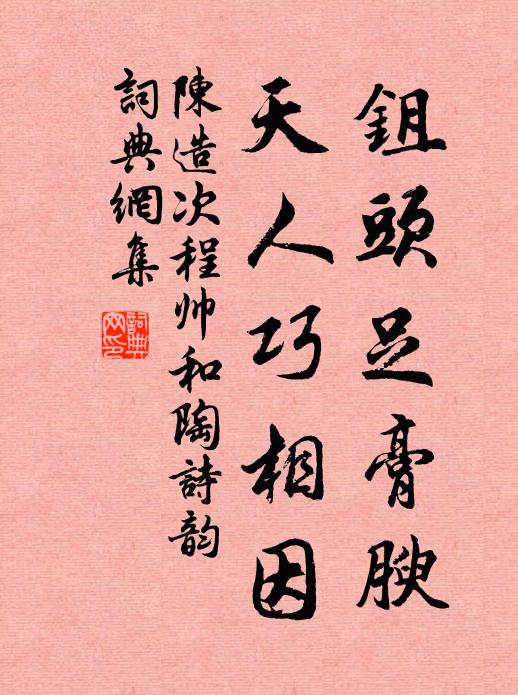 鉏頭足膏腴
天人巧相因
陳造次程帅和陶詩韵
詞典網集
詞典網印